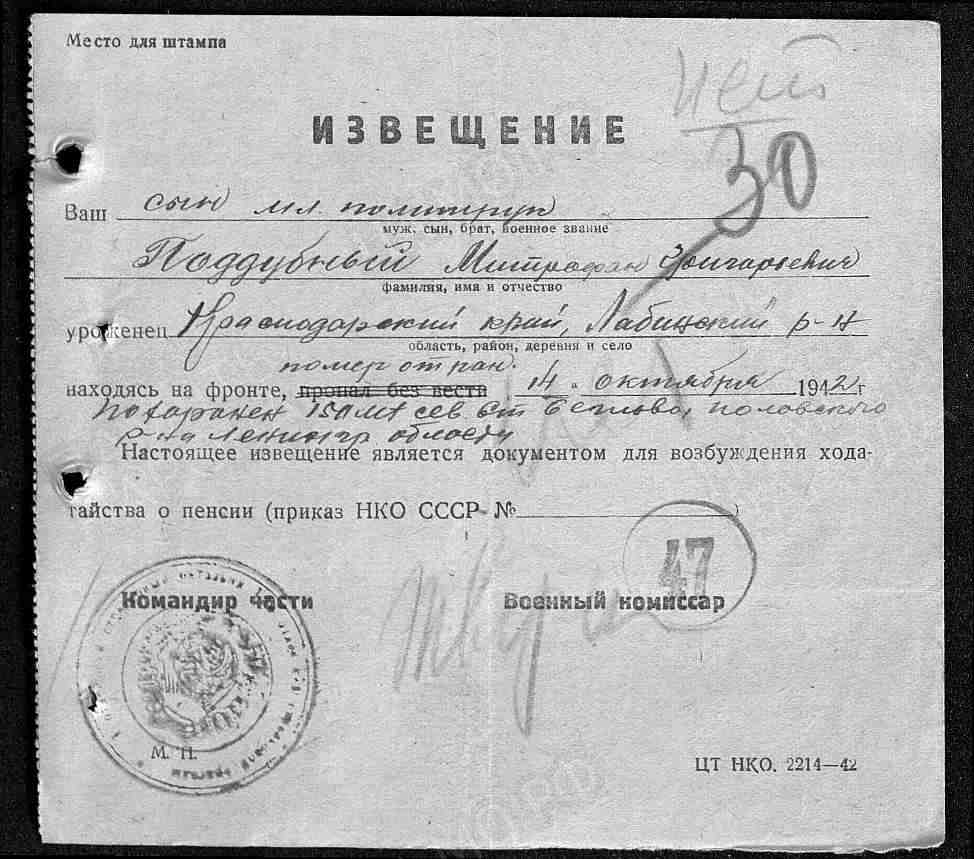 Место для штампа
нет
ИЗВЕЩЕНИЕ
30
Ваш сын мл. политрук
муж, сын, брат, военное звание
Поддубный Митрофан Григорьевич
фамилия, имя и отчество
уроженец Краснодарский край, Лабинский р-н
область, район, деревня и село
помер от ран.
находясь на фронте, пропал без вести 14 " октября 1942 г
похоронен 150 мт сев ст
р-на Ленингр области
Настоящее извещение является документом для возбуждения хода-
тайства о пенсии (приказ НКО СССР № )
47
Командир части Военный комиссар
М. П.
ЦТ НКО. 2214—42